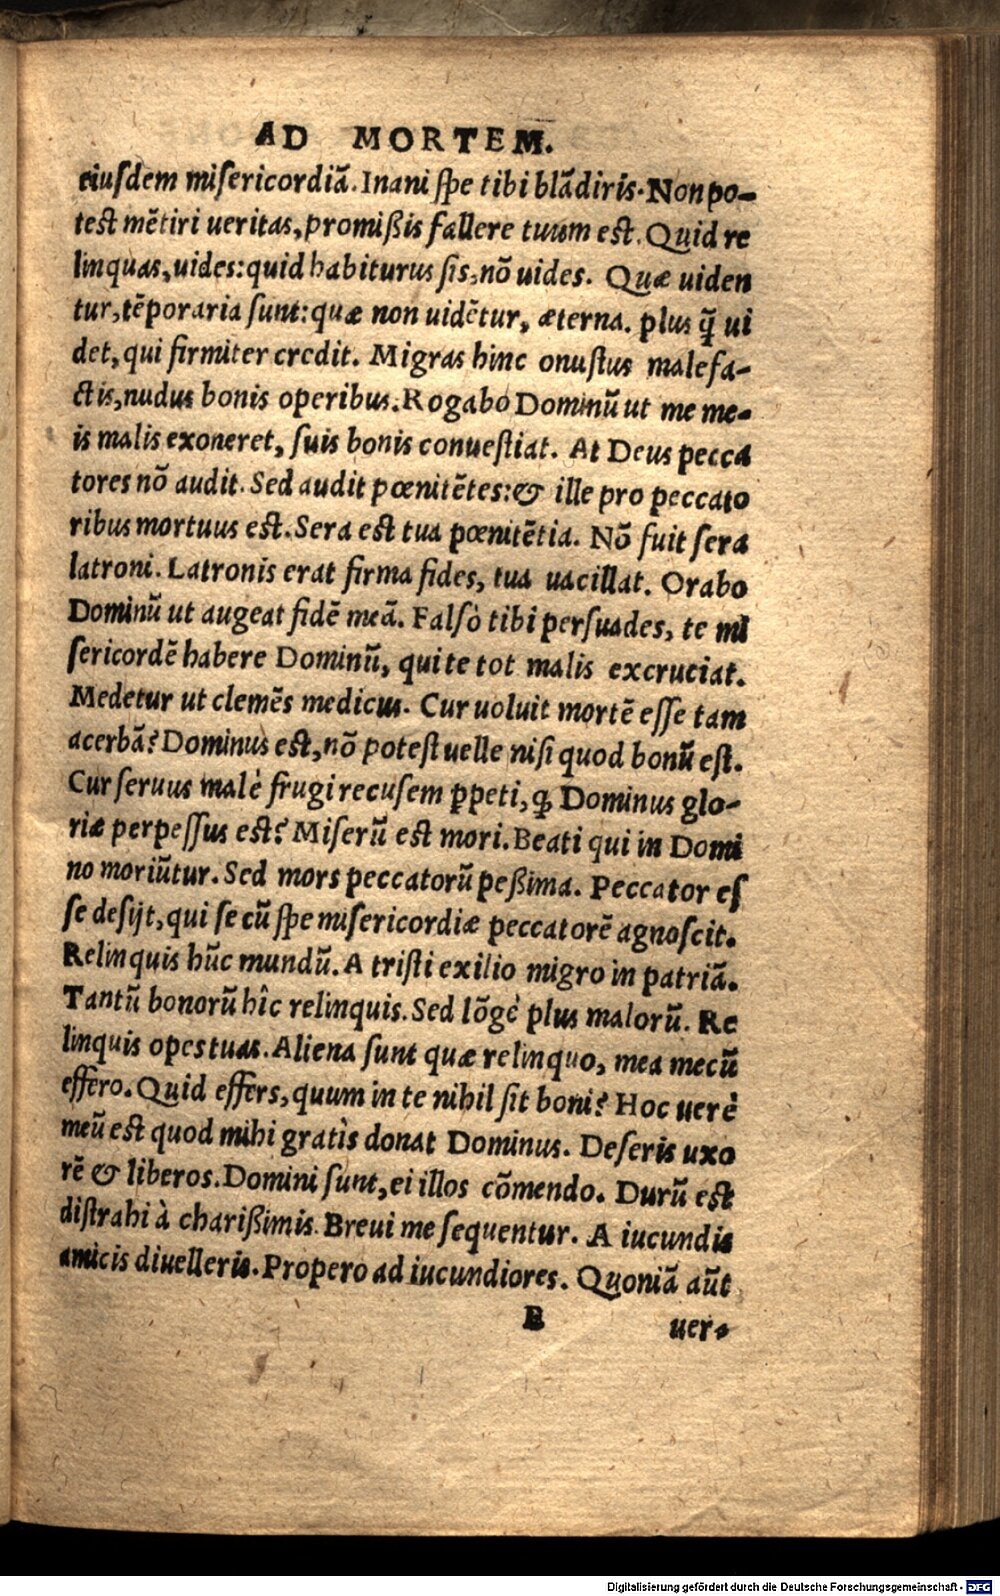 AD MORTEM.
eiusdem misericordiã. Inani spe tibi blãdiris. Non po-
test mẽtiri ueritas, promißis fallere tuum est. Quid re
linquas, uides: quid habiturus sis, nõ uides. Quæ uiden
tur, tẽporaria sunt: quæ non uidẽtur, æterna. plus q̃ ui
det, qui firmiter credit. Migras hinc onustus malefa-
ctis, nudus bonis operibus. Rogabo Dominũ ut me me-
is malis exoneret, suis bonis conuestiat. At Deus pecca
tores nõ audit. Sed audit pœnitẽtes: & ille pro peccato
ribus mortuus est. Sera est tua pœnitẽtia. Nõ fuit sera
latroni. Latronis erat firma fides, tua uacillat. Orabo
Dominũ ut augeat fidẽ meã. Falsò tibi persuades, te mi
sericordẽ habere Dominũ, qui te tot malis excruciat.
Medetur ut clemẽs medicus. Cur uoluit mortẽ esse tam
acerbã? Dominus est, nõ potest uelle nisi quod bonũ est.
Cur seruus malè frugi recusem ꝑpeti, ꝙ Dominus glo-
riæ perpessus est? Miserũ est mori. Beati qui in Domi
no moriũtur. Sed mors peccatorũ peßima. Peccator es
se desijt, qui se cũ spe misericordiæ peccatorẽ agnoscit.
Relinquis hũc mundũ. A tristi exilio migro in patriã.
Tantũ bonorũ hîc relinquis. Sed lõgè plus malorũ. Re
linquis opes tuas. Aliena sunt quæ relinquo, mea mecũ
effero. Quid effers, quum in te nihil sit boni? Hoc uerè
meũ est quod mihi gratìs donat Dominus. Deseris uxo
rẽ & liberos. Domini sunt, ei illos cõmendo. Durũ est
distrahi à charißimis. Breui me sequentur. A iucundis
amicis diuelleris. Propero ad iucundiores. Quoniã aũt
B uer-
Digitalisierung gefördert durch die Deutsche Forschungsgemeinschaft - DFG